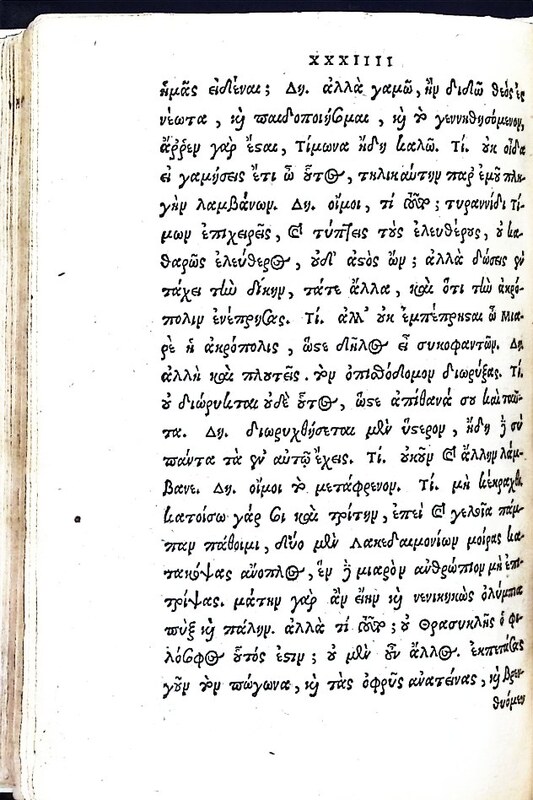 XXXIIII
ἡμᾶς εἰδέναι; Δη. ἀλλὰ γαμῶ, ἢν διδῶ θεὸς ἐς
νέωτα, καὶ παιδοποιήσομαι, καὶ τὸ γεννηθησόμενον,
ἄῤῥεν γὰρ ἔσαι, Τίμωνα ἤδη καλῶ. Τί. οὐκ οἶδα
εἰ γαμήσεις ἔτι ὦ οὗτος, τηλικαύτην παρ' ἐμοῦ πλη
γὴν λαμβάνων. Δη. οἴμοι, τί τοῦτο; τυραννίδι Τί
μων ἐπιχειρεῖς, καὶ τύπτεις τοὺς ἐλευθέρους, οὐ κα
θαρῶς ἐλεύθερος, οὐδ' ἀστὸς ὤν; ἀλλὰ δώσεις ἐν
τάχει τὴν δίκην, τάτε ἄλλα, καὶ ὅτι τὴν ἀκρό
πολιν ἐνέπρησας. Τί. ἀλλ' οὐκ ἐμπέπρησαι ὦ Μια
ρὲ ἡ ἀκρόπολις, ὥστε δῆλος εἶ συκοφαντῶν. Δη
ἀλλὴ καὶ πλουτεῖς. τὸν ὀπιθόδομον διωρύξας. Τί.
οὐ διώρυκται οὐδὲ οὗτος, ὥστε ἀπίθανά σου καὶ ταῦ
τα. Δη. διωρυχθήσεται μὲν ὕστερον, ἤδη δὲ σὺ
πάντα τὰ ἐν αὐτῷ ἔχεις. Τί. οὐκοῦν καὶ ἄλλην λάμ
βανε. Δη. οἴμοι τὸ μετάφρενον. Τί. μὴ κέκραχθι
κατοίσω γάρ σοι καὶ τρίτην, ἐπεὶ καὶ γελοῖα πάμ
παν πάθοιμι, δύο μὲν Λακεδαιμονίων μοίρας κα
τακόψας ἄνοπλος, ἓν δὲ μιαρὸν ἀνθρώπιον μὴ ἐπι
τρίψας. μάτην γὰρ ἂν εἴην καὶ νενικηκὼς ὀλύμπια
πὺξ καὶ πάλην. ἀλλὰ τί τοῦτο; οὐ Θρασυκλῆς ὁ φι
λόσοφος οὗτός ἐστιν; οὐ μὲν οὖν ἄλλος. ἐκπετάσας
γοῦν τὸν πώγωνα, καὶ τὰς ὀφρῦς ἀνατείνας, καὶ βρεν
θυόμεν